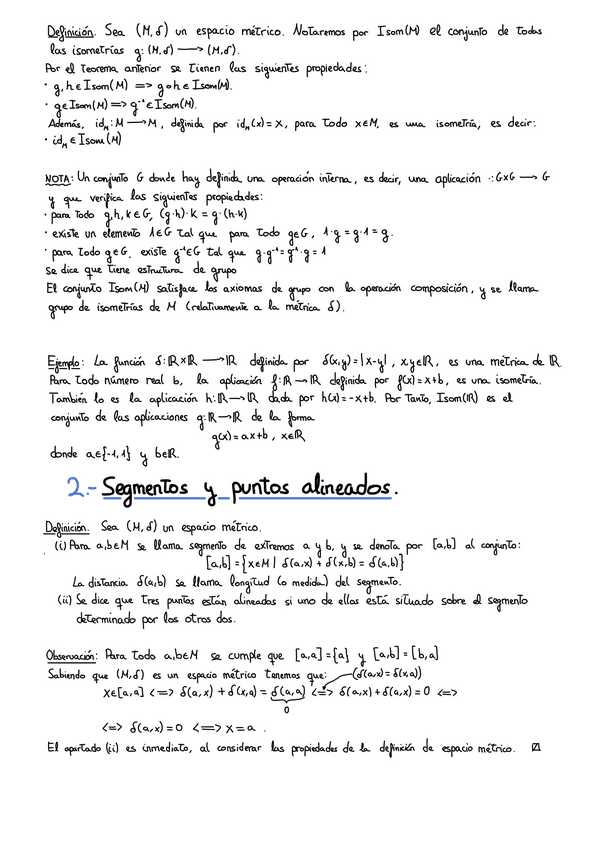 Definición. Sea (M,δ) un espacio métrico. Notaremos por Isom(M) el conjunto de todas
las isometrías g:(M,δ) ⟶ (M,δ).
Por el Teorema anterior se tienen las siguientes propiedades:
· g,h ∈ Isom(M) => g∘h ∈ Isom(M).
· g∈Isom(M) => g⁻¹∈Isom(M).
Además, id_M: M ⟶ M, definida por id_M(x)=x, para todo x∈M, es una isometría, es decir:
· id_M ∈ Isom(M)
NOTA: Un conjunto G donde hay definida una operación interna, es decir, una aplicación ·:G×G ⟶ G
y que verifica las siguientes propiedades:
· para todo g,h,k∈G, (g·h)·k = g·(h·k)
· existe un elemento 1∈G tal que para todo g∈G, 1·g = g·1 = g.
· para todo g∈G, existe g⁻¹∈G tal que g·g⁻¹=g⁻¹·g = 1
se dice que tiene estructura de grupo
El conjunto Isom(M) satisface los axiomas de grupo con la operación composición, y se llama
grupo de isometrías de M (relativamente a la métrica δ).
Ejemplo: La función δ:ℝ×ℝ ⟶ℝ definida por δ(x,y)=|x-y|, x,y∈ℝ, es una métrica de ℝ
Para todo número real b, la aplicación f:ℝ⟶ℝ definida por f(x)=x+b, es una isometría.
También lo es la aplicación h:ℝ⟶ℝ dada por h(x)=-x+b. Por tanto, Isom(ℝ) es el
conjunto de las aplicaciones g:ℝ⟶ℝ de la forma
g(x)=ax+b, x∈ℝ
donde a∈{-1,1} y b∈ℝ.
2.- Segmentos y puntos alineados.
Definición. Sea (M,δ) un espacio métrico.
(i) Para a,b∈M se llama segmento de extremos a y b, y se denota por [a,b] al conjunto:
[a,b]={x∈M | δ(a,x) + δ(x,b) = δ(a,b)}
La distancia δ(a,b) se llama longitud (o medida) del segmento.
(ii) Se dice que tres puntos están alineados si uno de ellos está situado sobre el segmento
determinado por los otros dos.
Observación: Para todo a,b∈M se cumple que [a,a]={a} y [a,b]=[b,a]
Sabiendo que (M,δ) es un espacio métrico tenemos que: (δ(a,x)=δ(x,a))
x∈[a,a] <=> δ(a,x) + δ(x,a) = δ(a,a) <=> δ(a,x)+δ(a,x)=0 <=>
0
<=> δ(a,x)=0 <=> x=a.
El apartado (ii) es inmediato, al considerar las propiedades de la definición de espacio métrico.